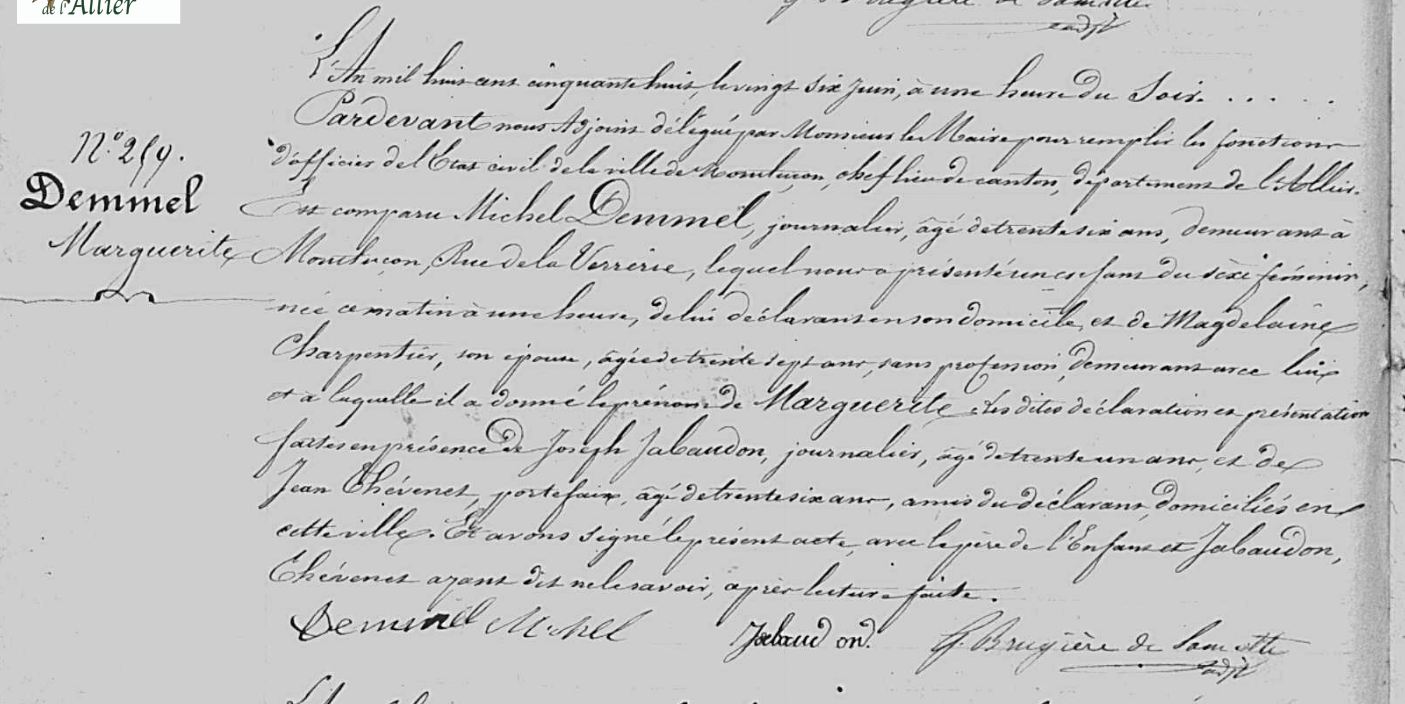 de l'Allier
L'An mil huit cent cinquante huit, le vingt six Juin, à une heure du Soir. . . . .
Pardevant nous Adjoint délégué par Monsieur le Maire pour remplir les fonctions
d'officier de l'Etat civil de la ville de Montluçon, chef lieu de canton, département de l'Allier.
N.º 259.
Demmel
Marguerite
Est comparu Michel Demmel, journalier, âgé de trente six ans, demeurant à
Montluçon, Rue de la Verrerie, lequel nous a présenté un enfant du sèxe féminin,
née ce matin à une heure, de lui déclarant en son domicile, et de Magdelaine
Charpentier, son épouse, âgée de trente sept ans, sans profession, demeurant avec lui
et à laquelle il a donné le prénom de Marguerite. Les dites déclaration et présentation
faites en présence de Joseph Jabaudon, journalier, âgé de trente un ans, et de
Jean Thévenet, portefaix, âgé de trente six ans, amis du déclarant, domiciliés en
cette ville. Et avons signé le présent acte, avec le père de l'Enfant et Jabaudon,
Thévenet ayant dit ne le savoir, après lecture faite.
Demmel Michel Jabaudon. G. Brugière de Lamotte
adjt